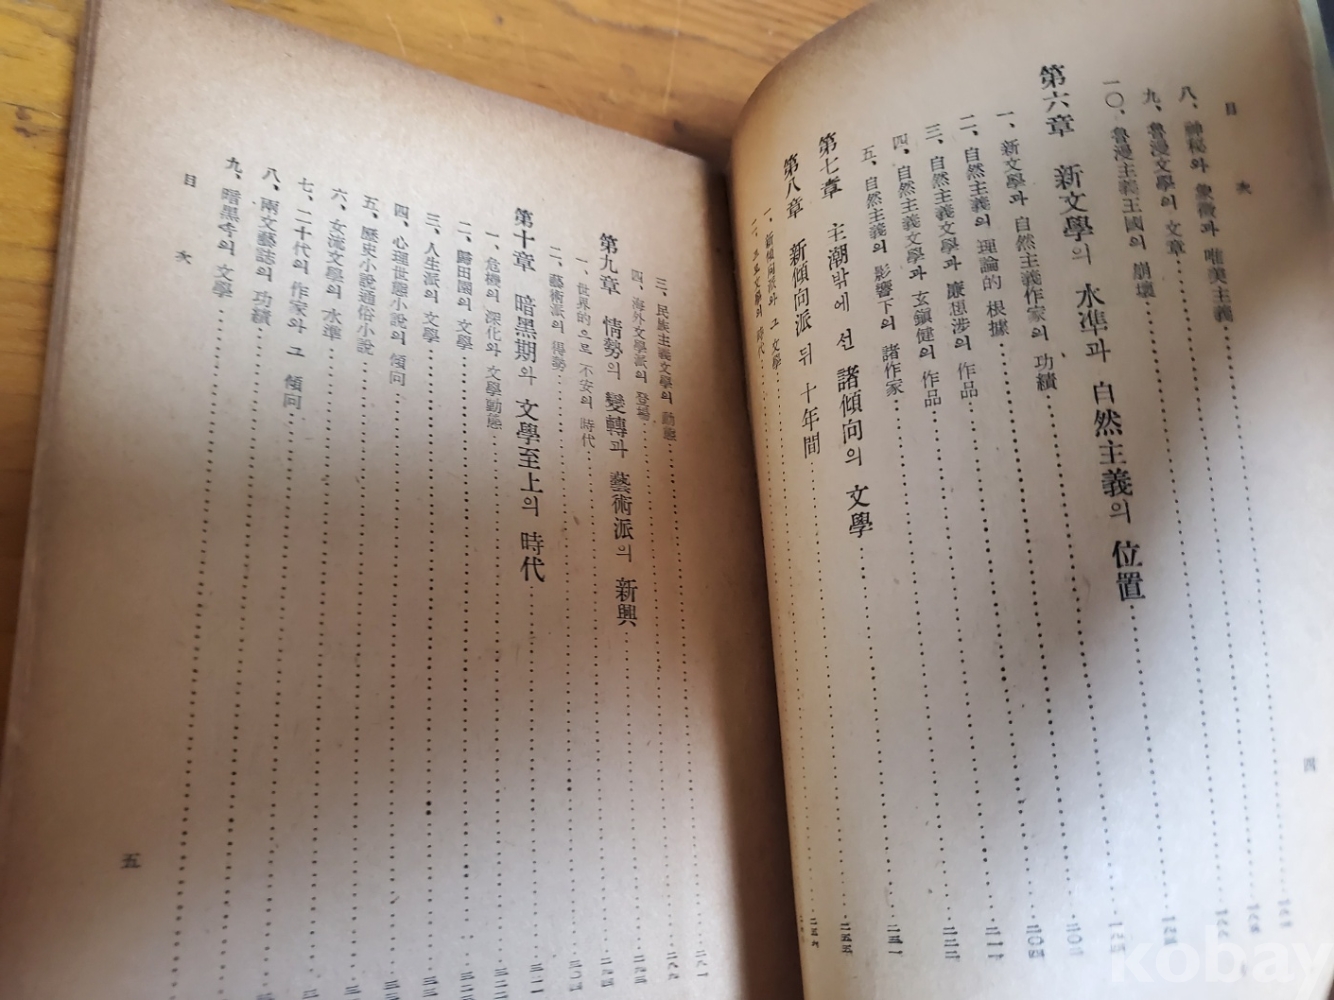 目次
八、神秘와 象徵과 唯美主義
九、魯漫文學의 文章
一〇、魯漫主義王國의 崩壞
第六章 新文學의 水準과 自然主義의 位置
一、新文學과 自然主義作家의 功績
二、自然主義의 理論的 根據
三、自然主義文學과 廉想涉의 作品
四、自然主義文學과 玄鎭健의 作品
五、自然主義의 影響下의 諸作家
第七章 主潮밖에 선 諸傾向의 文學
第八章 新傾向派 뒤 十年間
一、新傾向派와 그 文學
四
三、民族主義文學의 動態
四、海外文學派의 登場
第九章 情勢의 變轉과 藝術派의 新興
一、世界的으로 不安의 時代
二、藝術派의 得勢
第十章 暗黑期와 文學至上의 時代
一、危機의 深化와 文學動態
二、歸田園의 文學
三、人生派의 文學
四、心理世態小說의 傾向
五、歷史小說通俗小說
六、女流文學의 水準
七、二十代의 作家와 그 傾向
八、兩文藝誌의 功績
九、暗黑속의 文學
目次
五
kobay